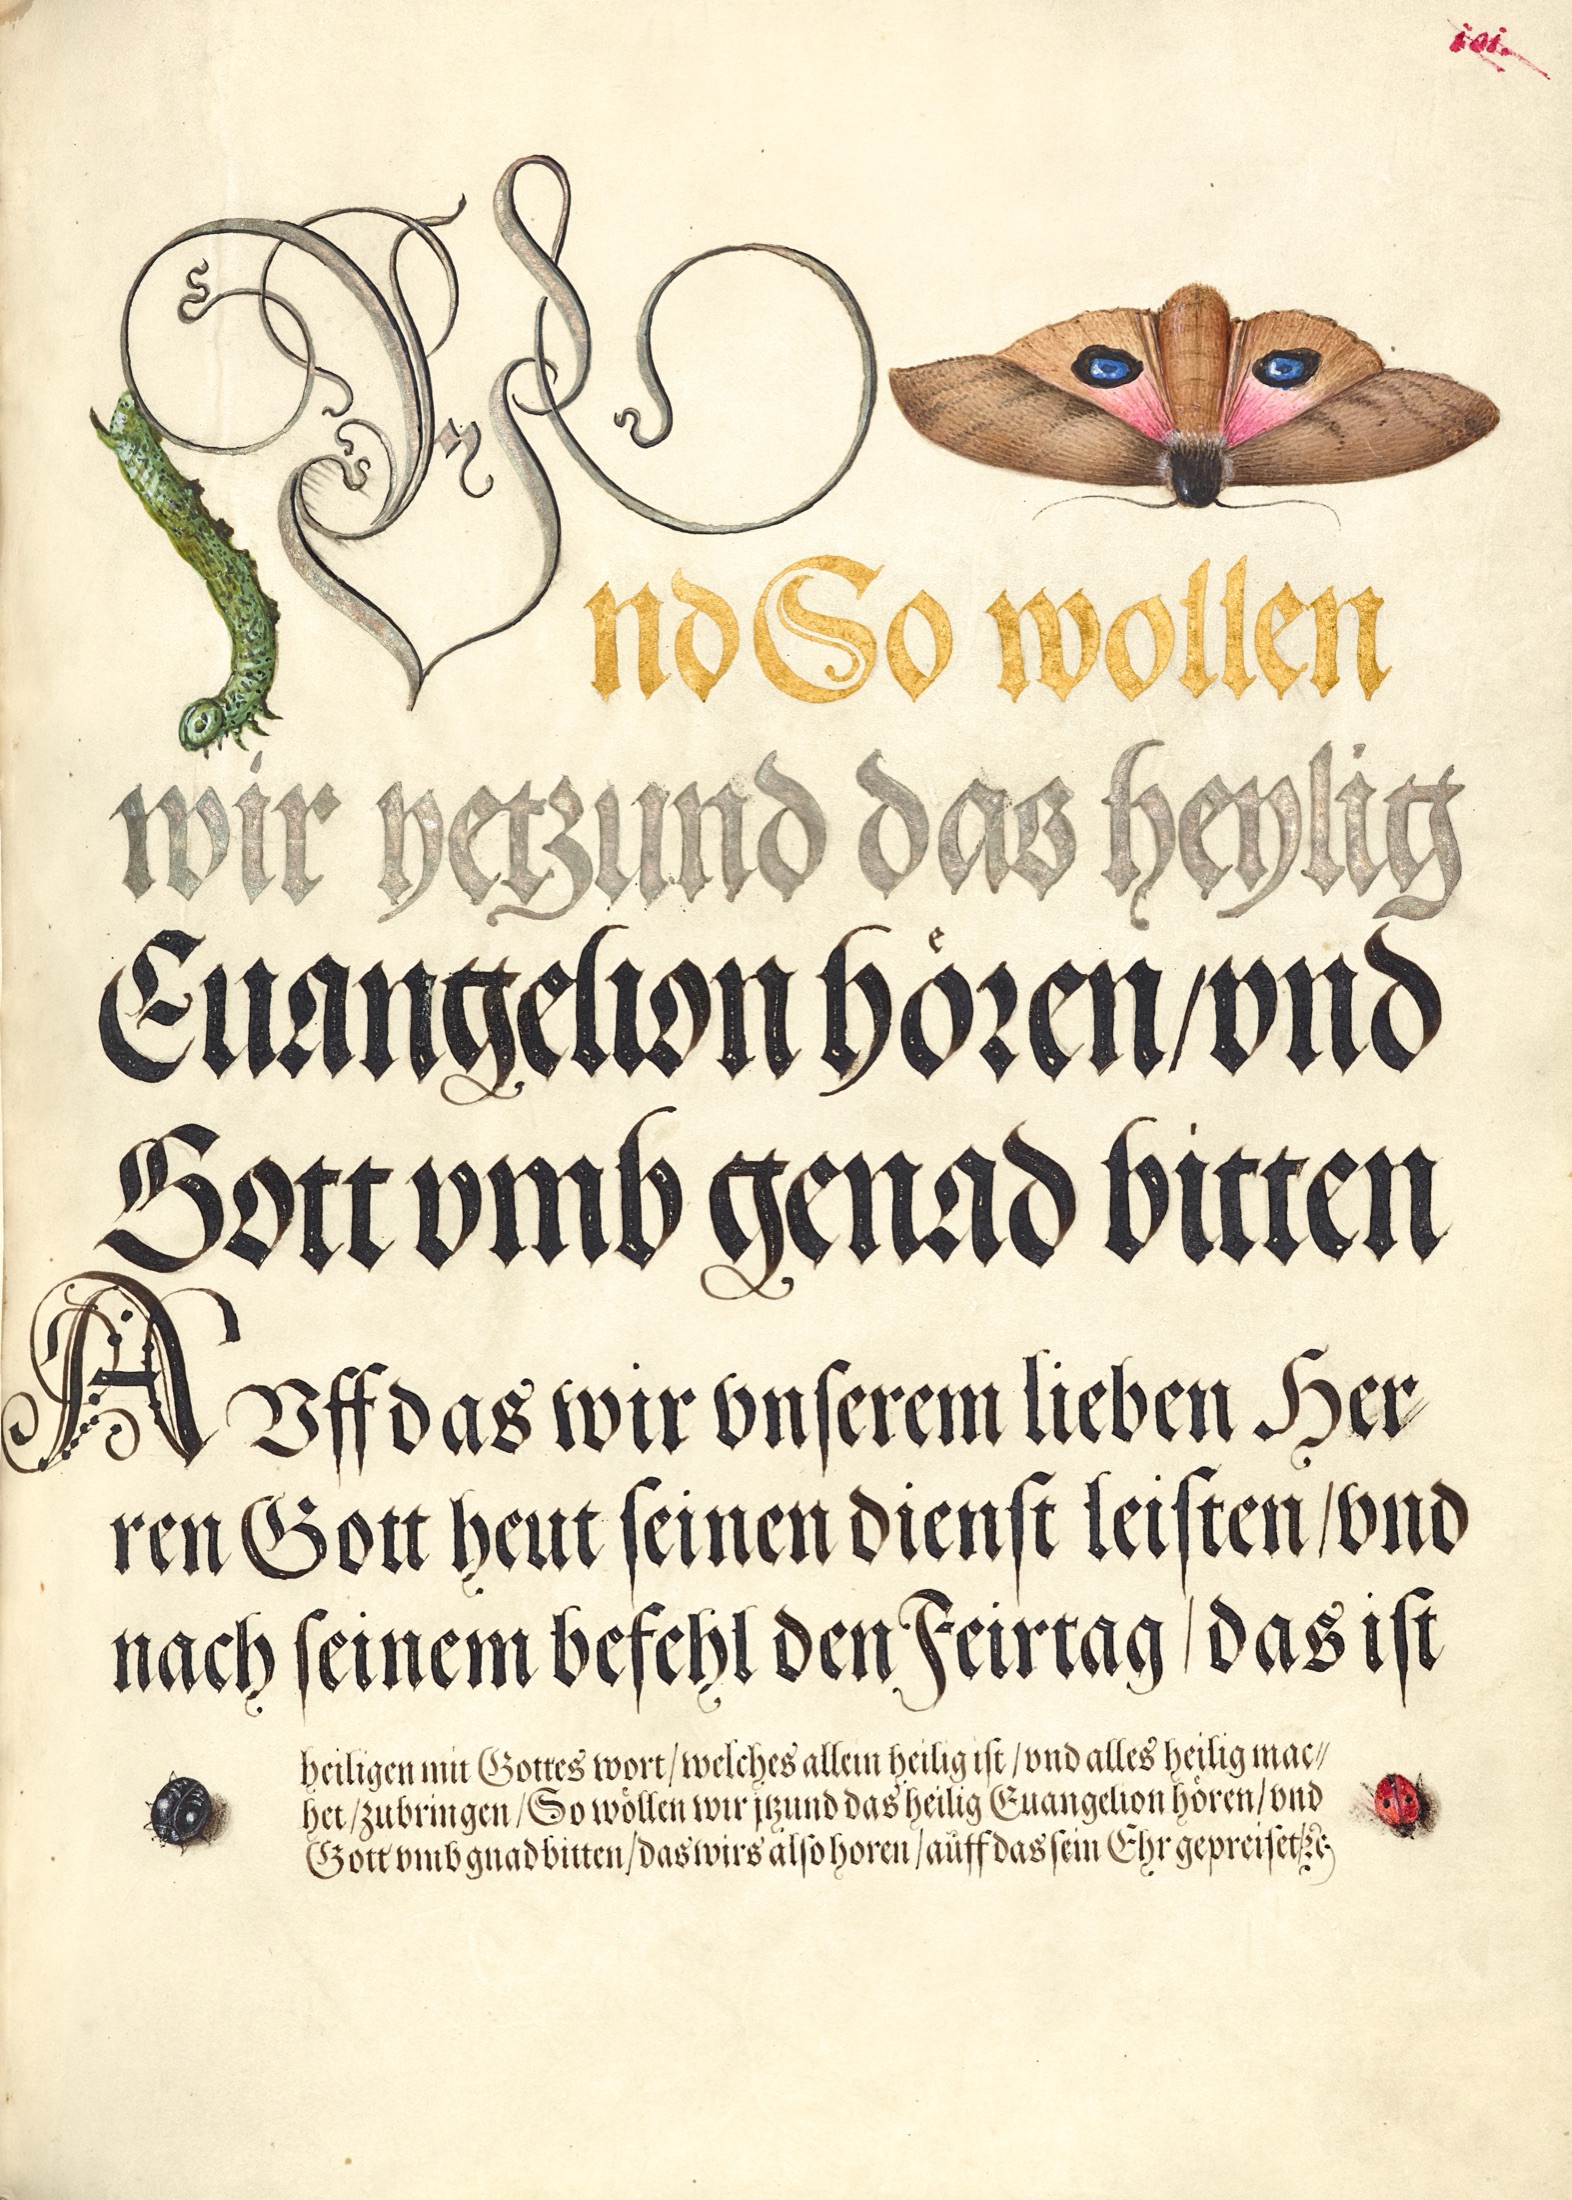 Vnd So wollen
wir yetzund das heylig
Euangelion hoͤren/vnd
Gott vmb genad bitten
AVff das wir vnserem lieben Her
ren Gott heut seinen dienst leisten/vnd
nach seinem befehl den Feirtag/das ist
heiligen mit Gottes wort/welches allein heilig ist/vnd alles heilig mac//
het/zubringen/So wöllen wir jtzund das heilig Euangelion hören/vnd
Gott vmb gnad bitten/das wirs also horen/auff das sein Ehr gepreiset/ꝛc